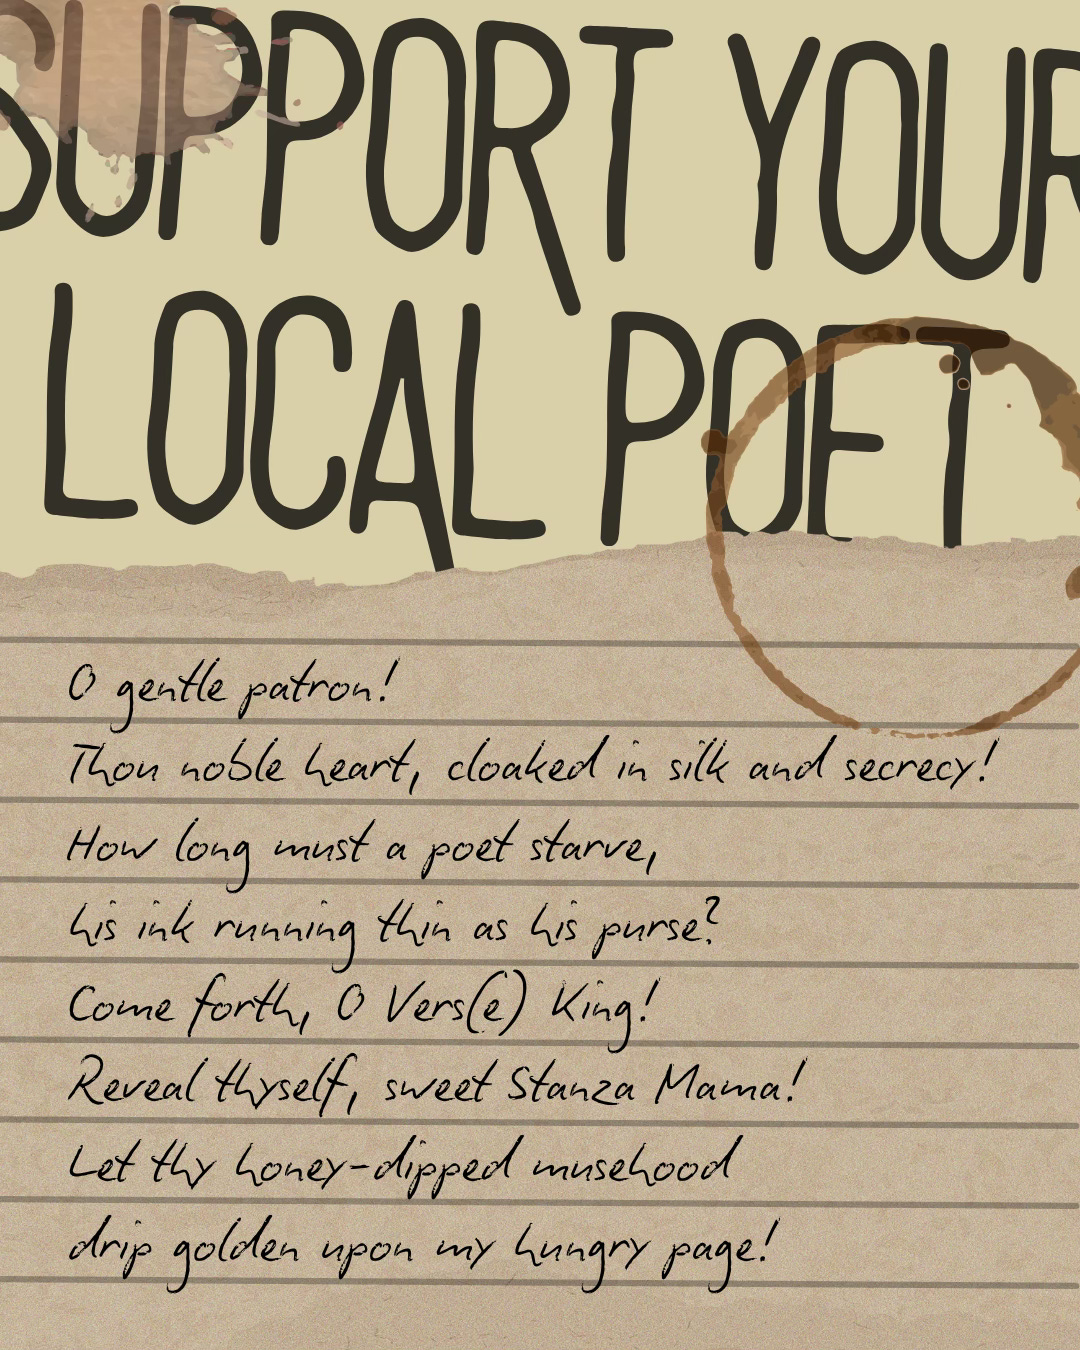 SUPPORT YOUR
LOCAL POET
O gentle patron!
Thou noble heart, cloaked in silk and secrecy!
How long must a poet starve,
his ink running thin as his purse?
Come forth, O Vers(e) King!
Reveal thyself, sweet Stanza Mama!
Let thy honey-dipped musehood
drip golden upon my hungry page!